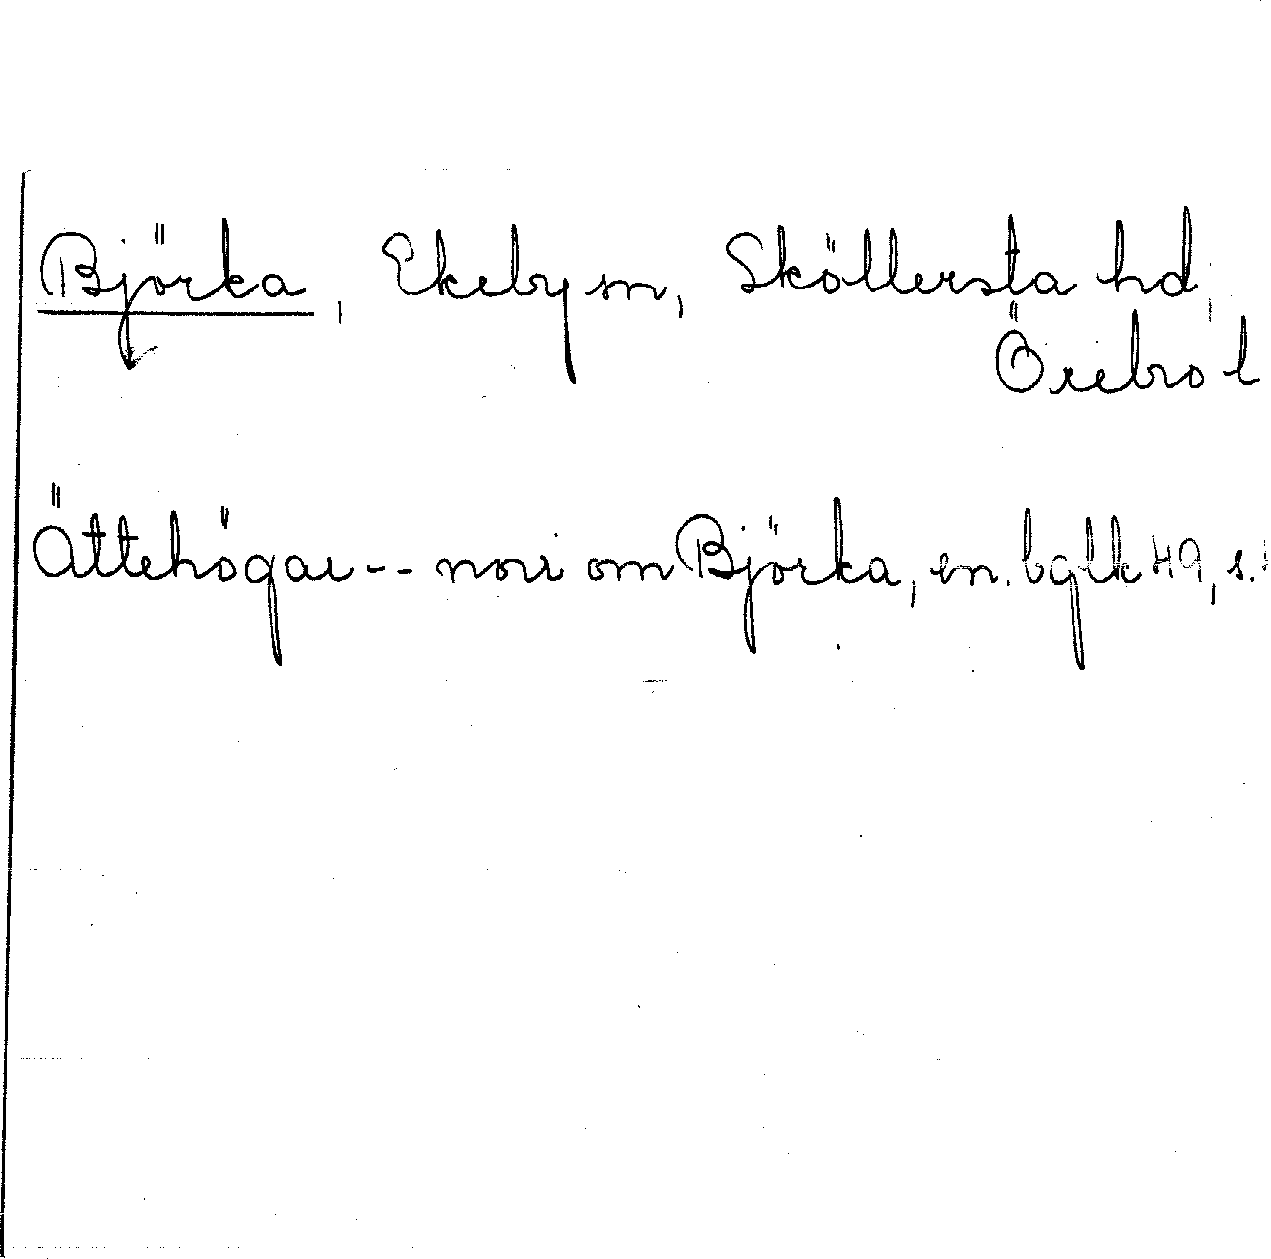 Björka, Ekeby sn, Sköllersta hd,
Örebro l
Ättehögar -- norr om Björka, en. bglk 49, s.